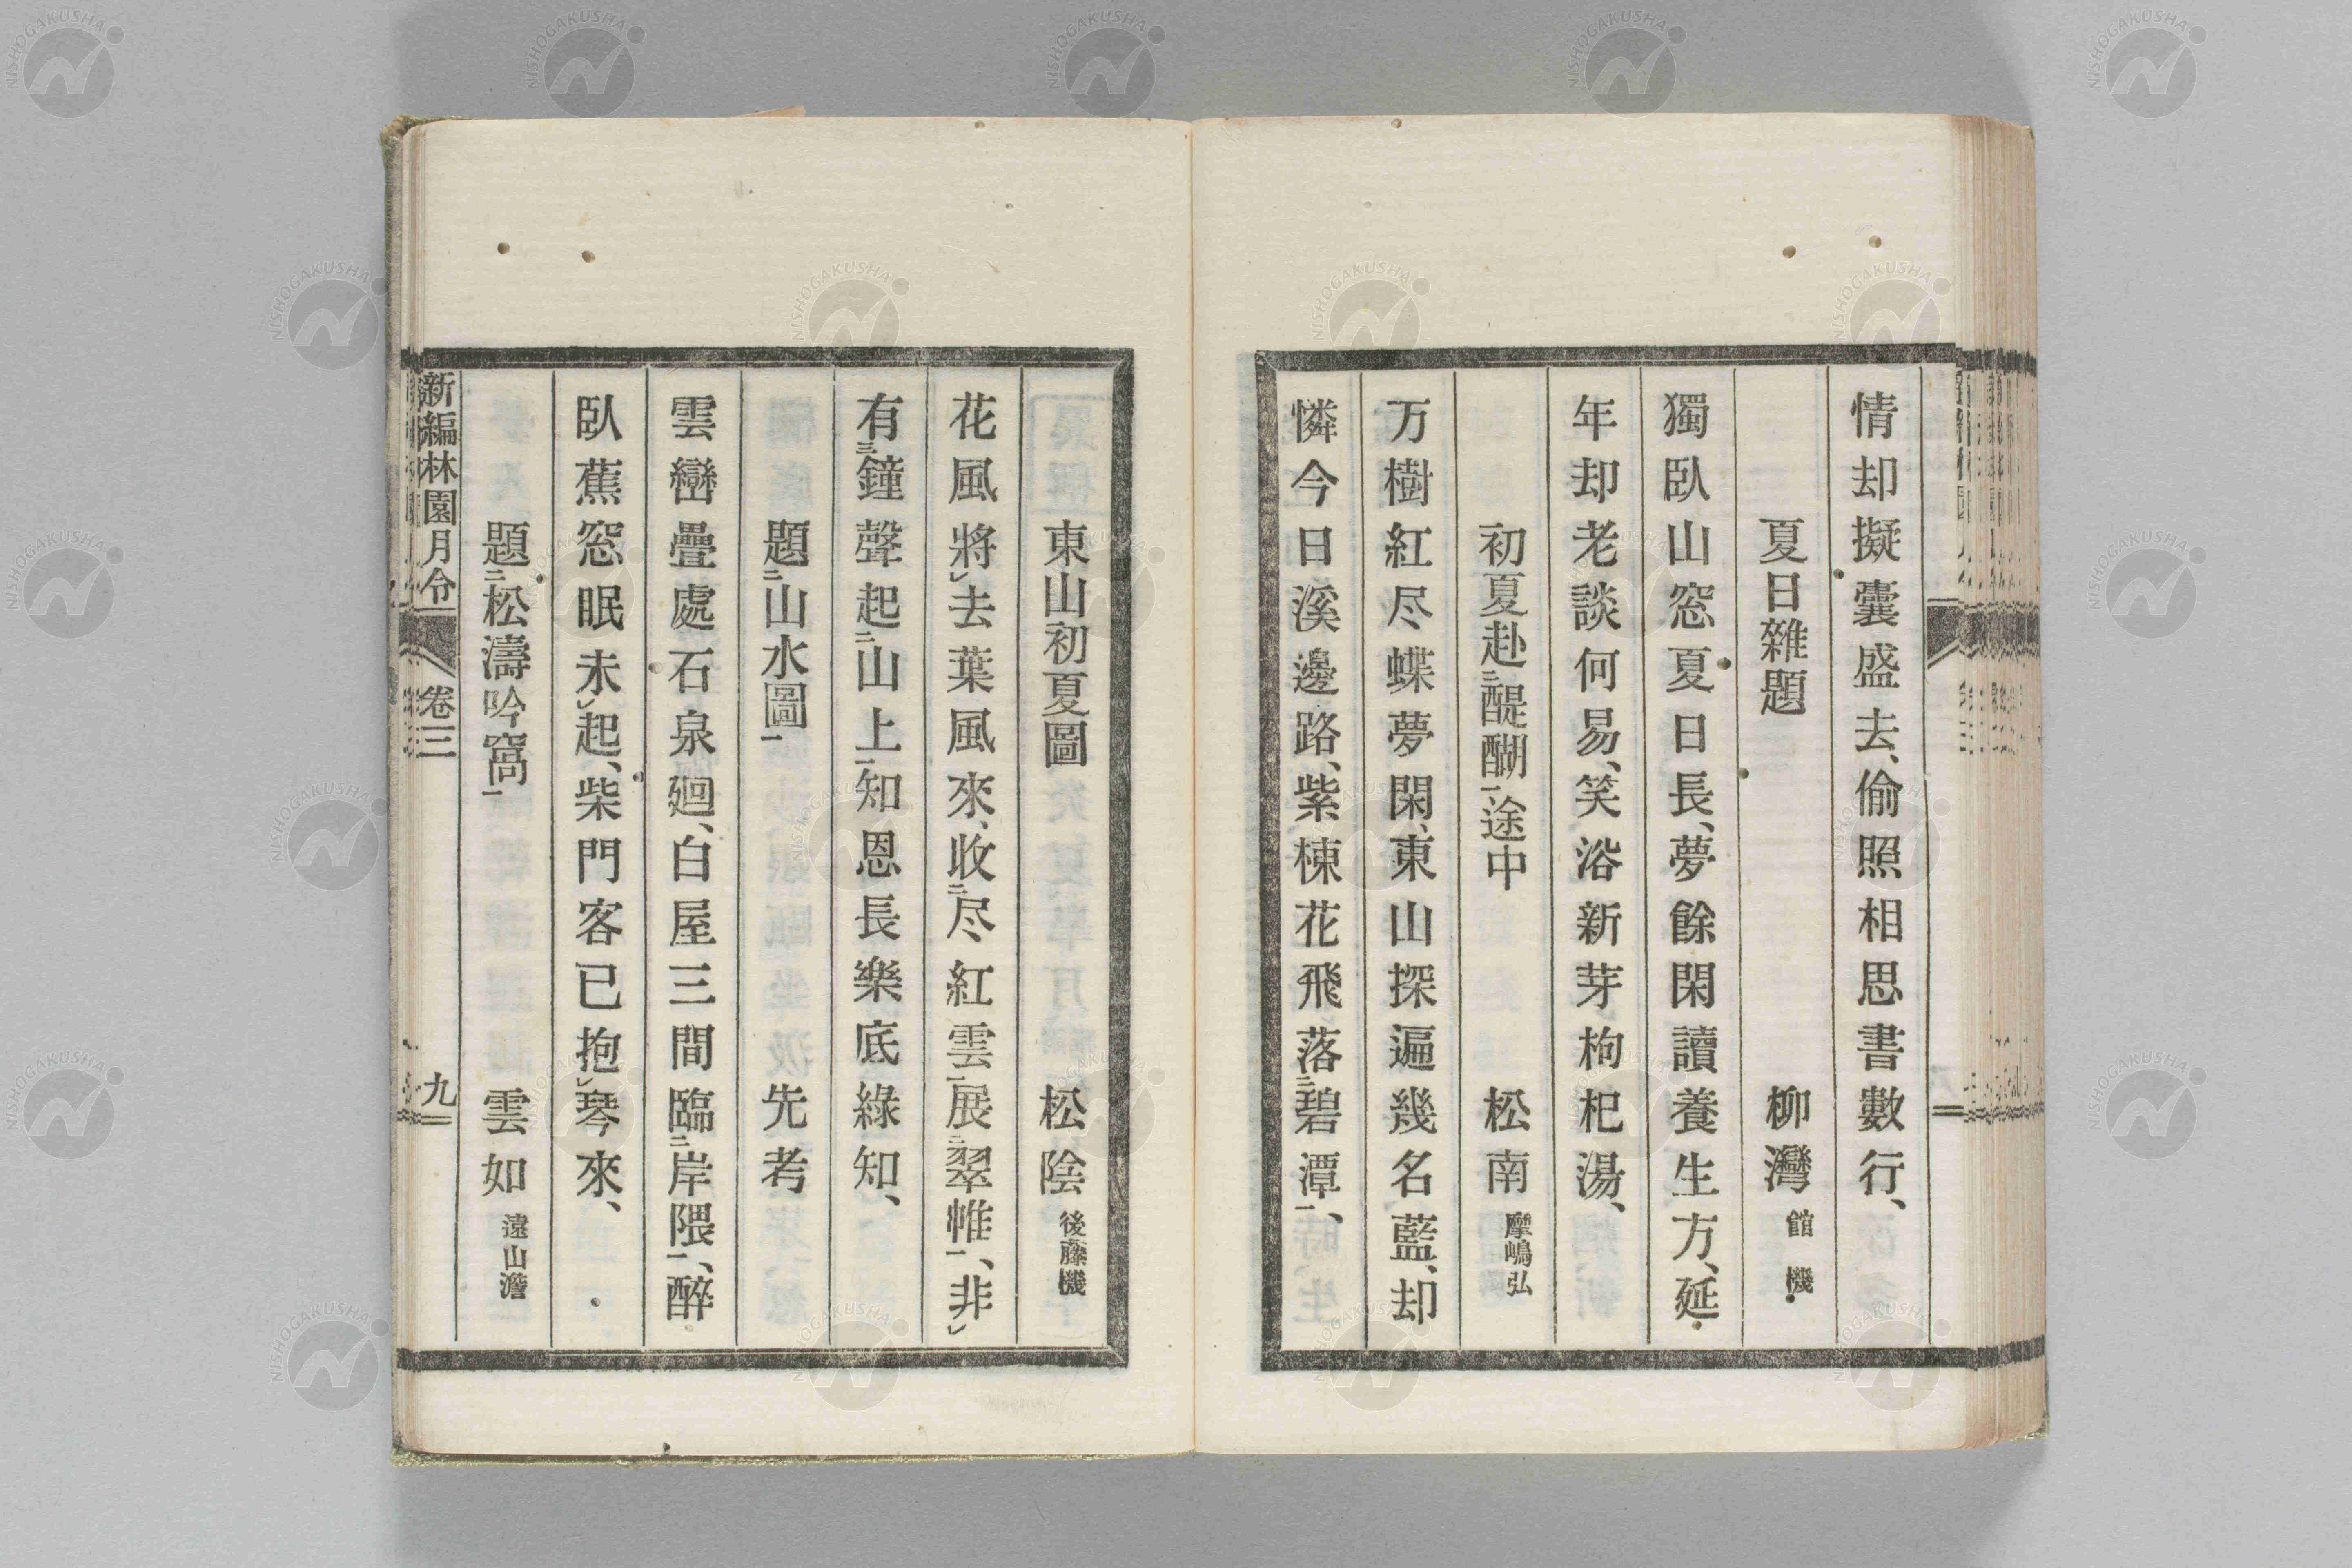 情却擬囊盛去、偷照相思書數行、
夏日雜題　柳灣 館機
獨臥山窓夏日長、夢餘閑讀養生方、延
年却老談何易、笑浴新芽枸杞湯、
初夏赴二醍醐一途中　松南 摩嶋弘
万樹紅尽蝶夢閑、東山探遍幾名藍、却
憐今日溪邊路、紫棟花飛落二碧潭一、
東山初夏圖　松陰 後藤機
花風將レ去葉風來、收二尽紅雲一展二翠帷一、非レ
有三鐘聲起二山上一知恩長樂底綠知、
題二山水圖一　先考
雲巒疊處石泉廻、白屋三間臨二岸隈一、醉
臥蕉窓眠未レ起、柴門客已抱レ琴來、
題二松濤吟窩一　雲如 遠山澹
新編林園月令 卷三 九
NISHOGAKUSHA